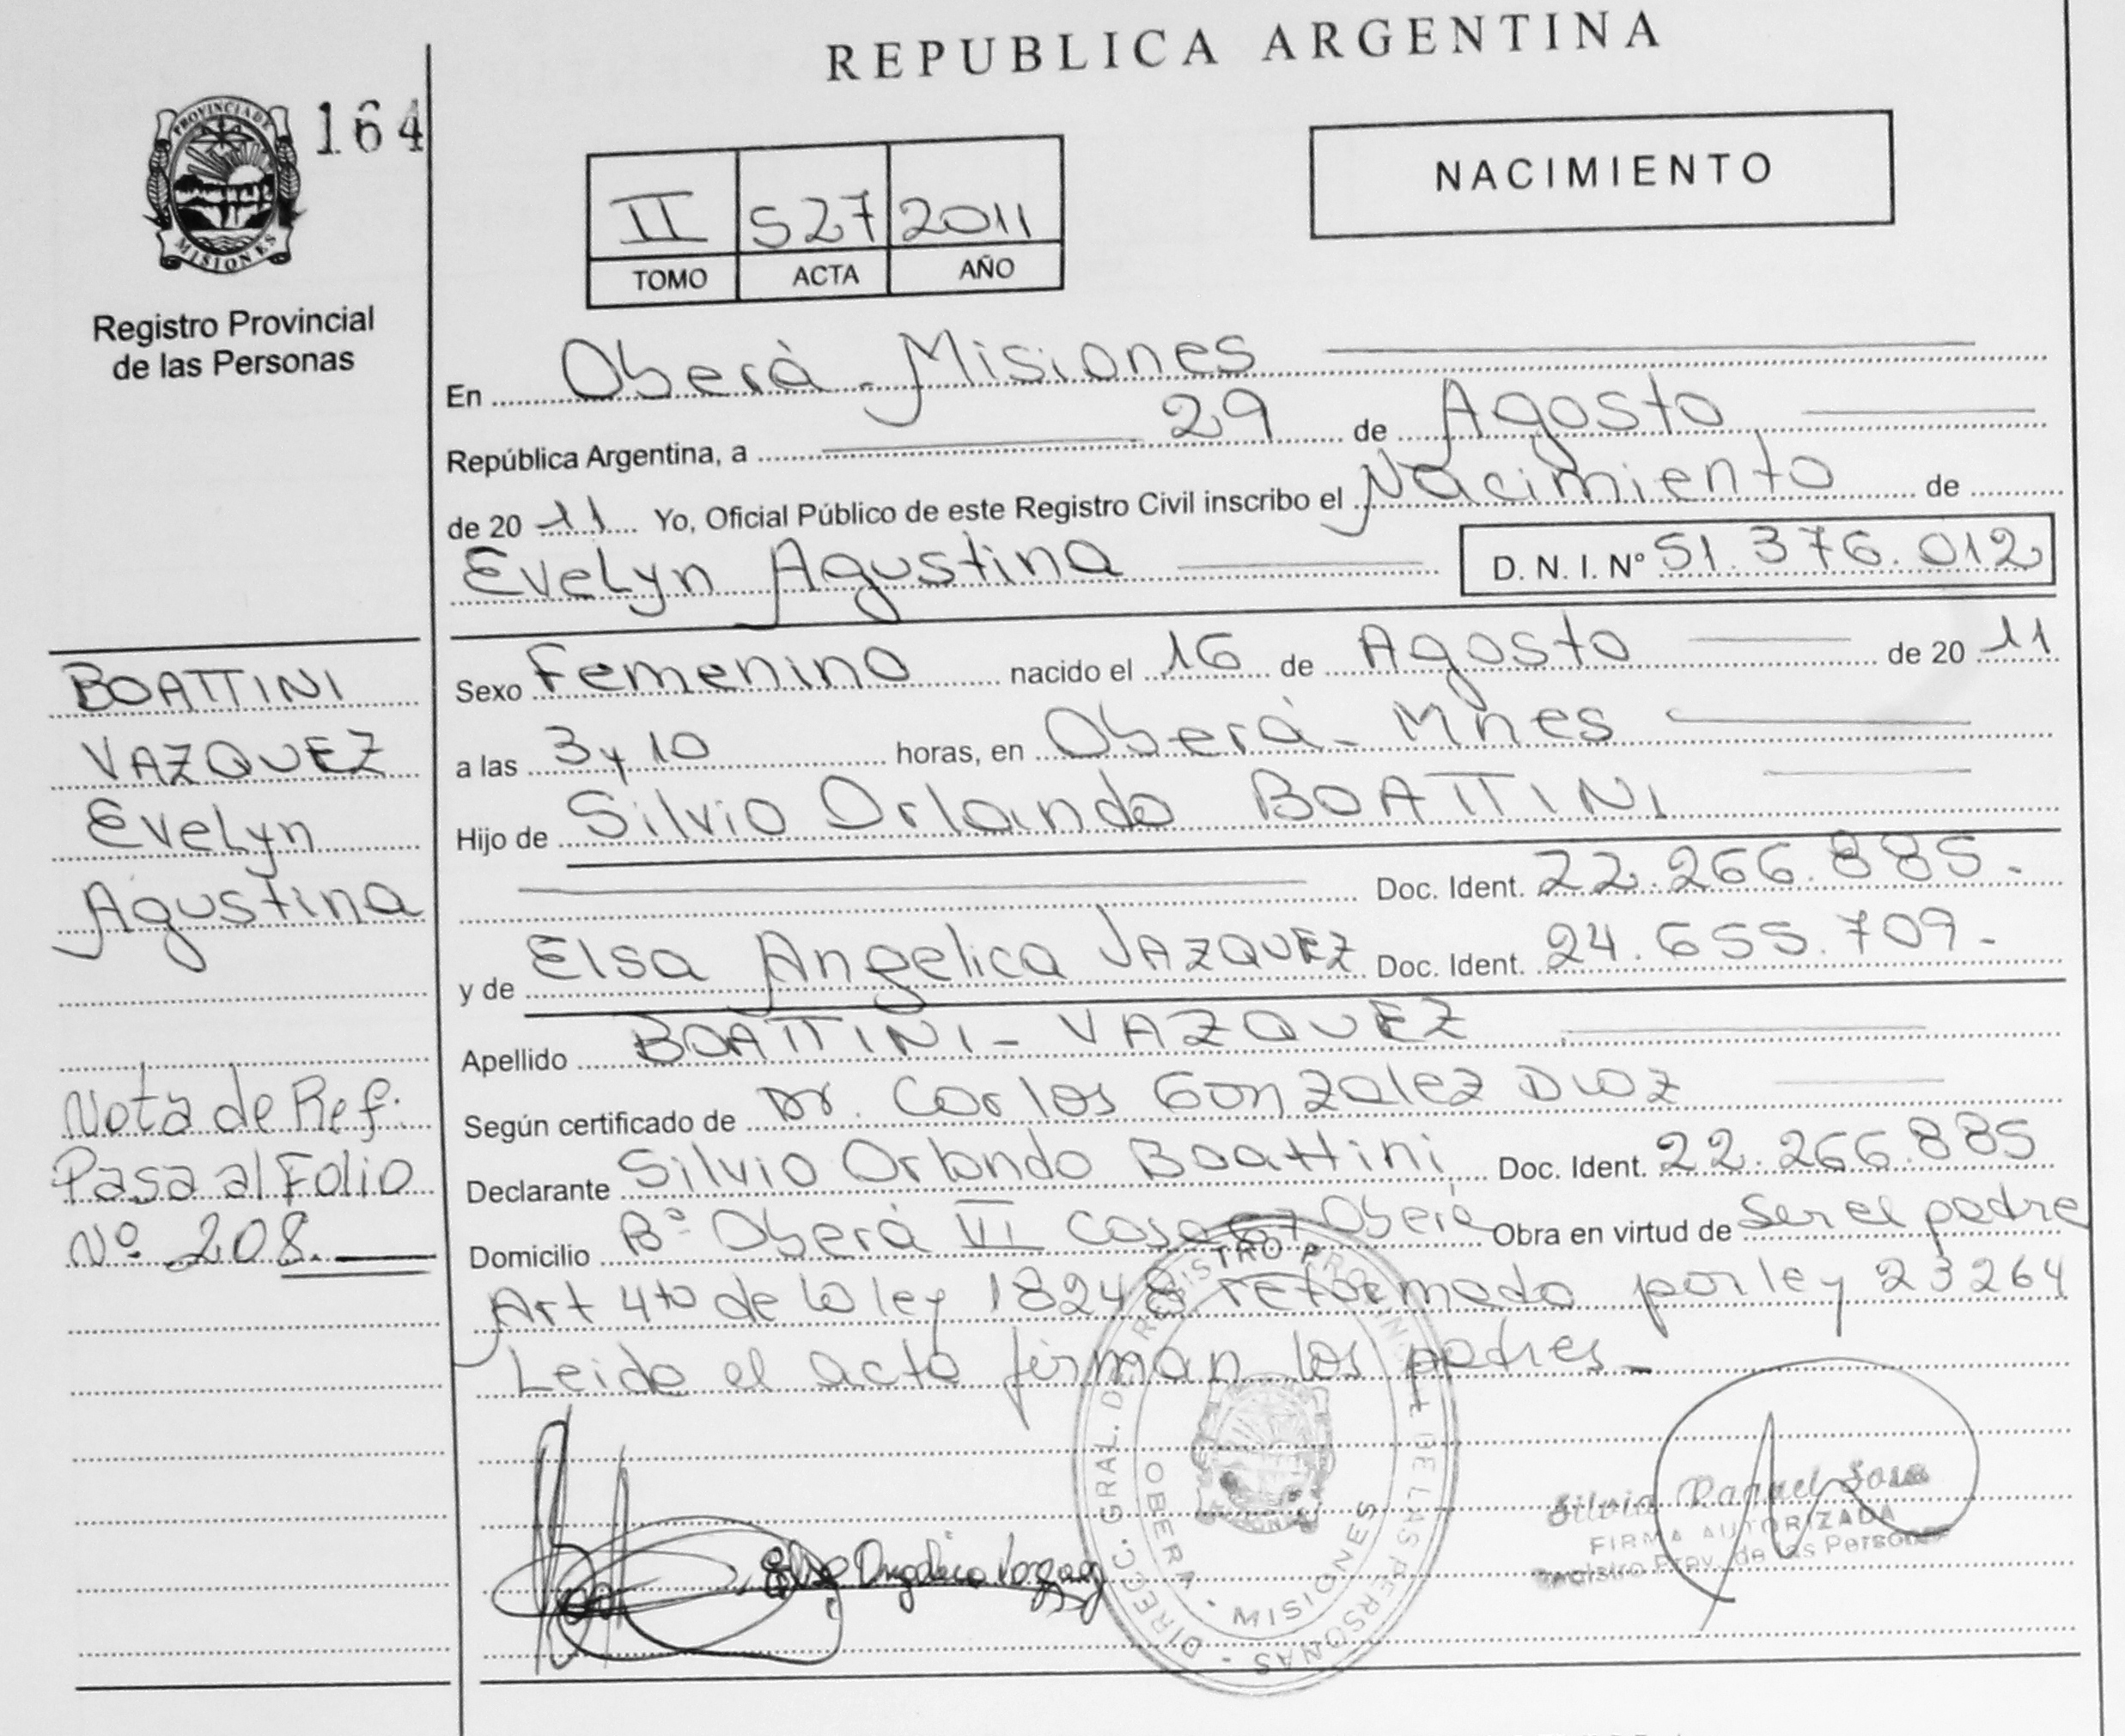 REPUBLICA ARGENTINA
PROVINCIA DE
MISIONES
164
NACIMIENTO
II 527 2011
TOMO ACTA AÑO
Registro Provincial
de las Personas
En Oberà - Misiones
República Argentina, a 29 de Agosto
de 20 11 Yo, Oficial Público de este Registro Civil inscribo el Nacimiento de
Evelyn Agustina D. N. I. Nº 51.376.012
BOATTINI
VAZQUEZ
Evelyn
Agustina
Sexo Femenino nacido el 16 de Agosto de 20 11
a las 3 y 10 horas, en Oberá - Mnes
Hijo de Silvio Orlando BOATTINI
Doc. Ident. 22.266.885.-
y de Elsa Angelica VAZQUEZ Doc. Ident. 24.655.709.-
Apellido BOATTINI - VAZQUEZ
Según certificado de Dr. Carlos Gonzalez Diaz
Declarante Silvio Orlando Boattini Doc. Ident. 22.266.885
Domicilio Bº Oberá VI Casa Oberá Obra en virtud de Ser el padre
Art 4to de la ley 18248 reformado por ley 23264
Leida el acta firman los padres -
Nota de Ref:
Pasa al Folio
Nº 208.
Elsa Angelica
DIREC. GRAL. DEL REGISTRO PROVINCIAL DE LAS PERSONAS
OBERA - MISIONES
Silvia Raquel Sosa
FIRMA AUTORIZADA
Registro Prov. de las Personas